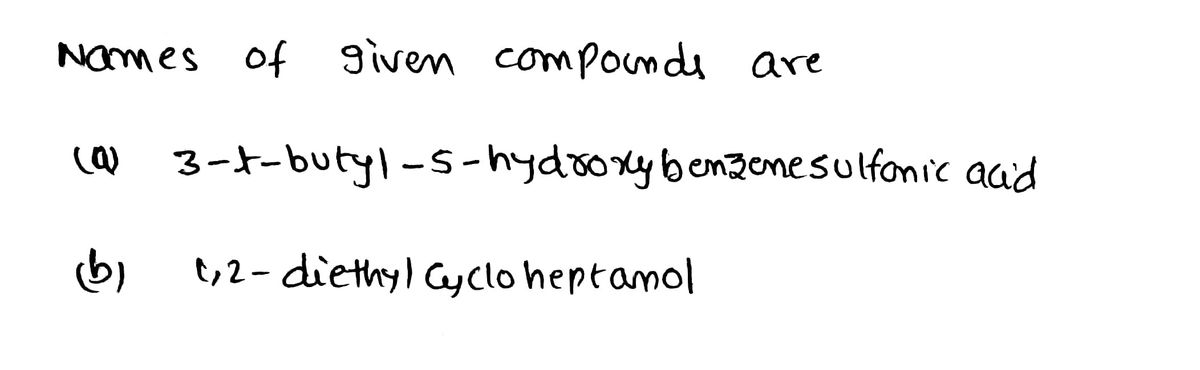 Names of given compounds are
(a) 3-t-butyl-5-hydroxybenzenesulfonic acid
(b) 1,2-diethyl cycloheptanol